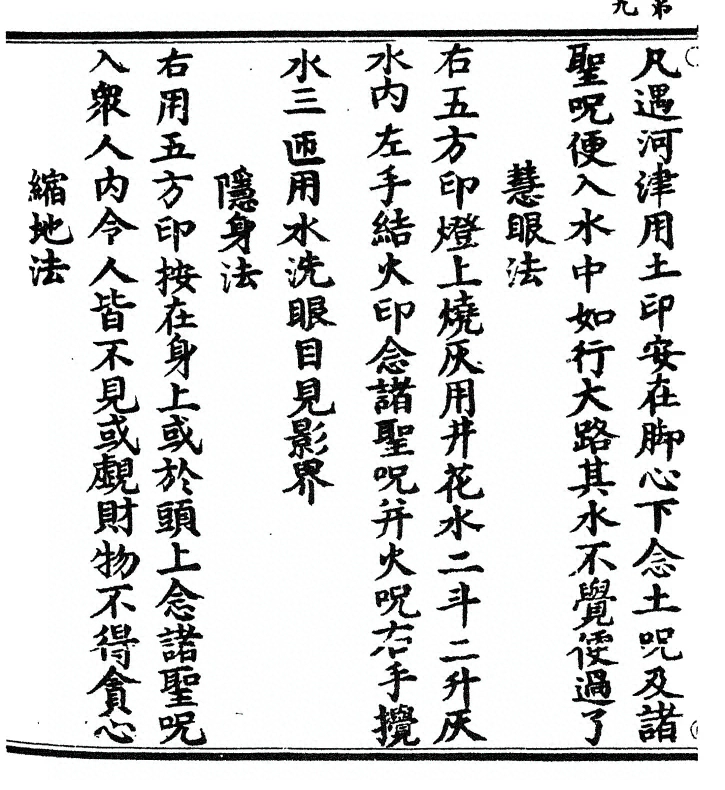 弟九
凡遇河津用土印安在脚心下念土呪及諸
聖呪便入水中如行大路其水不覺便過了
慧眼法
右五方印燈上燒灰用井花水二斗二升灰
水内左手結火印念諸聖呪并火呪右手攪
水三匝用水洗眼目見影界
隱身法
右用五方印按在身上或於頭上念諸聖呪
入衆人内令人皆不見或覷財物不得貪心
縮地法